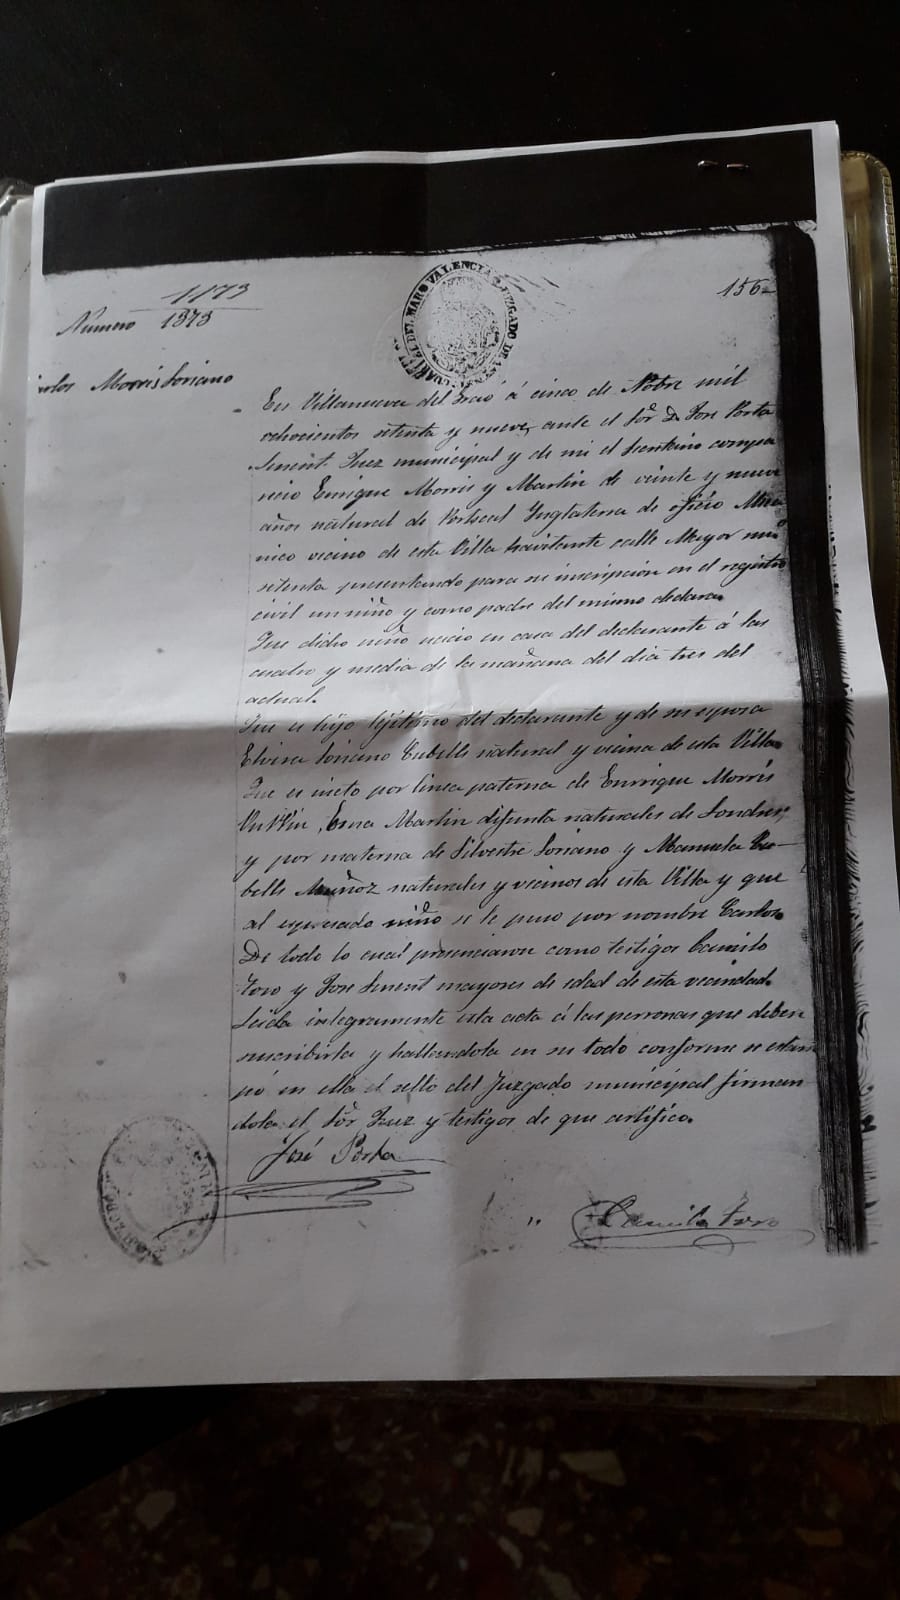 1173
156
Número 1373
Morris Soriano
En Villanueva del Grao á cinco de Nobre mil
ochocientos setenta y nueve, ante el Sor D. Jose Porta
Climent Juez municipal y de mi el Secretario compa
recio Enrique Morris y Martin de veinte y nueve
años natural de Inglaterra de oficio
vecino de esta Villa havitante calle Mayor
setenta presentando para su inscripción en el registro
civil un niño y como padre del mismo declara.
Que dicho niño nacio en casa del declarante á las
cuatro y media de la mañana del dia tres del
actual.
Que es hijo lejitimo del declarante y de su esposa
Elvira Soriano Cubells natural y vecina de esta Villa
Que es nieto por linea paterna de Enrrique Morris
Martin difunta naturales de Londres,
y por materna de Silvestre Soriano y Manuela Cu-
bells Muñoz naturales y vecinos de esta Villa y que
al espresado niño se le puso por nombre Carlos.
De todo lo cual presenciaron como testigos Camilo
Toro y Jose Climent mayores de edad de esta vecindad.
Leida integramente esta acta á las personas que deben
suscribirla y hallandola en su todo conforme se estam
pó en ella el sello del Juzgado municipal firman
dola el Sor Juez y testigos de que certifico.
José Porta
Camilo Toro